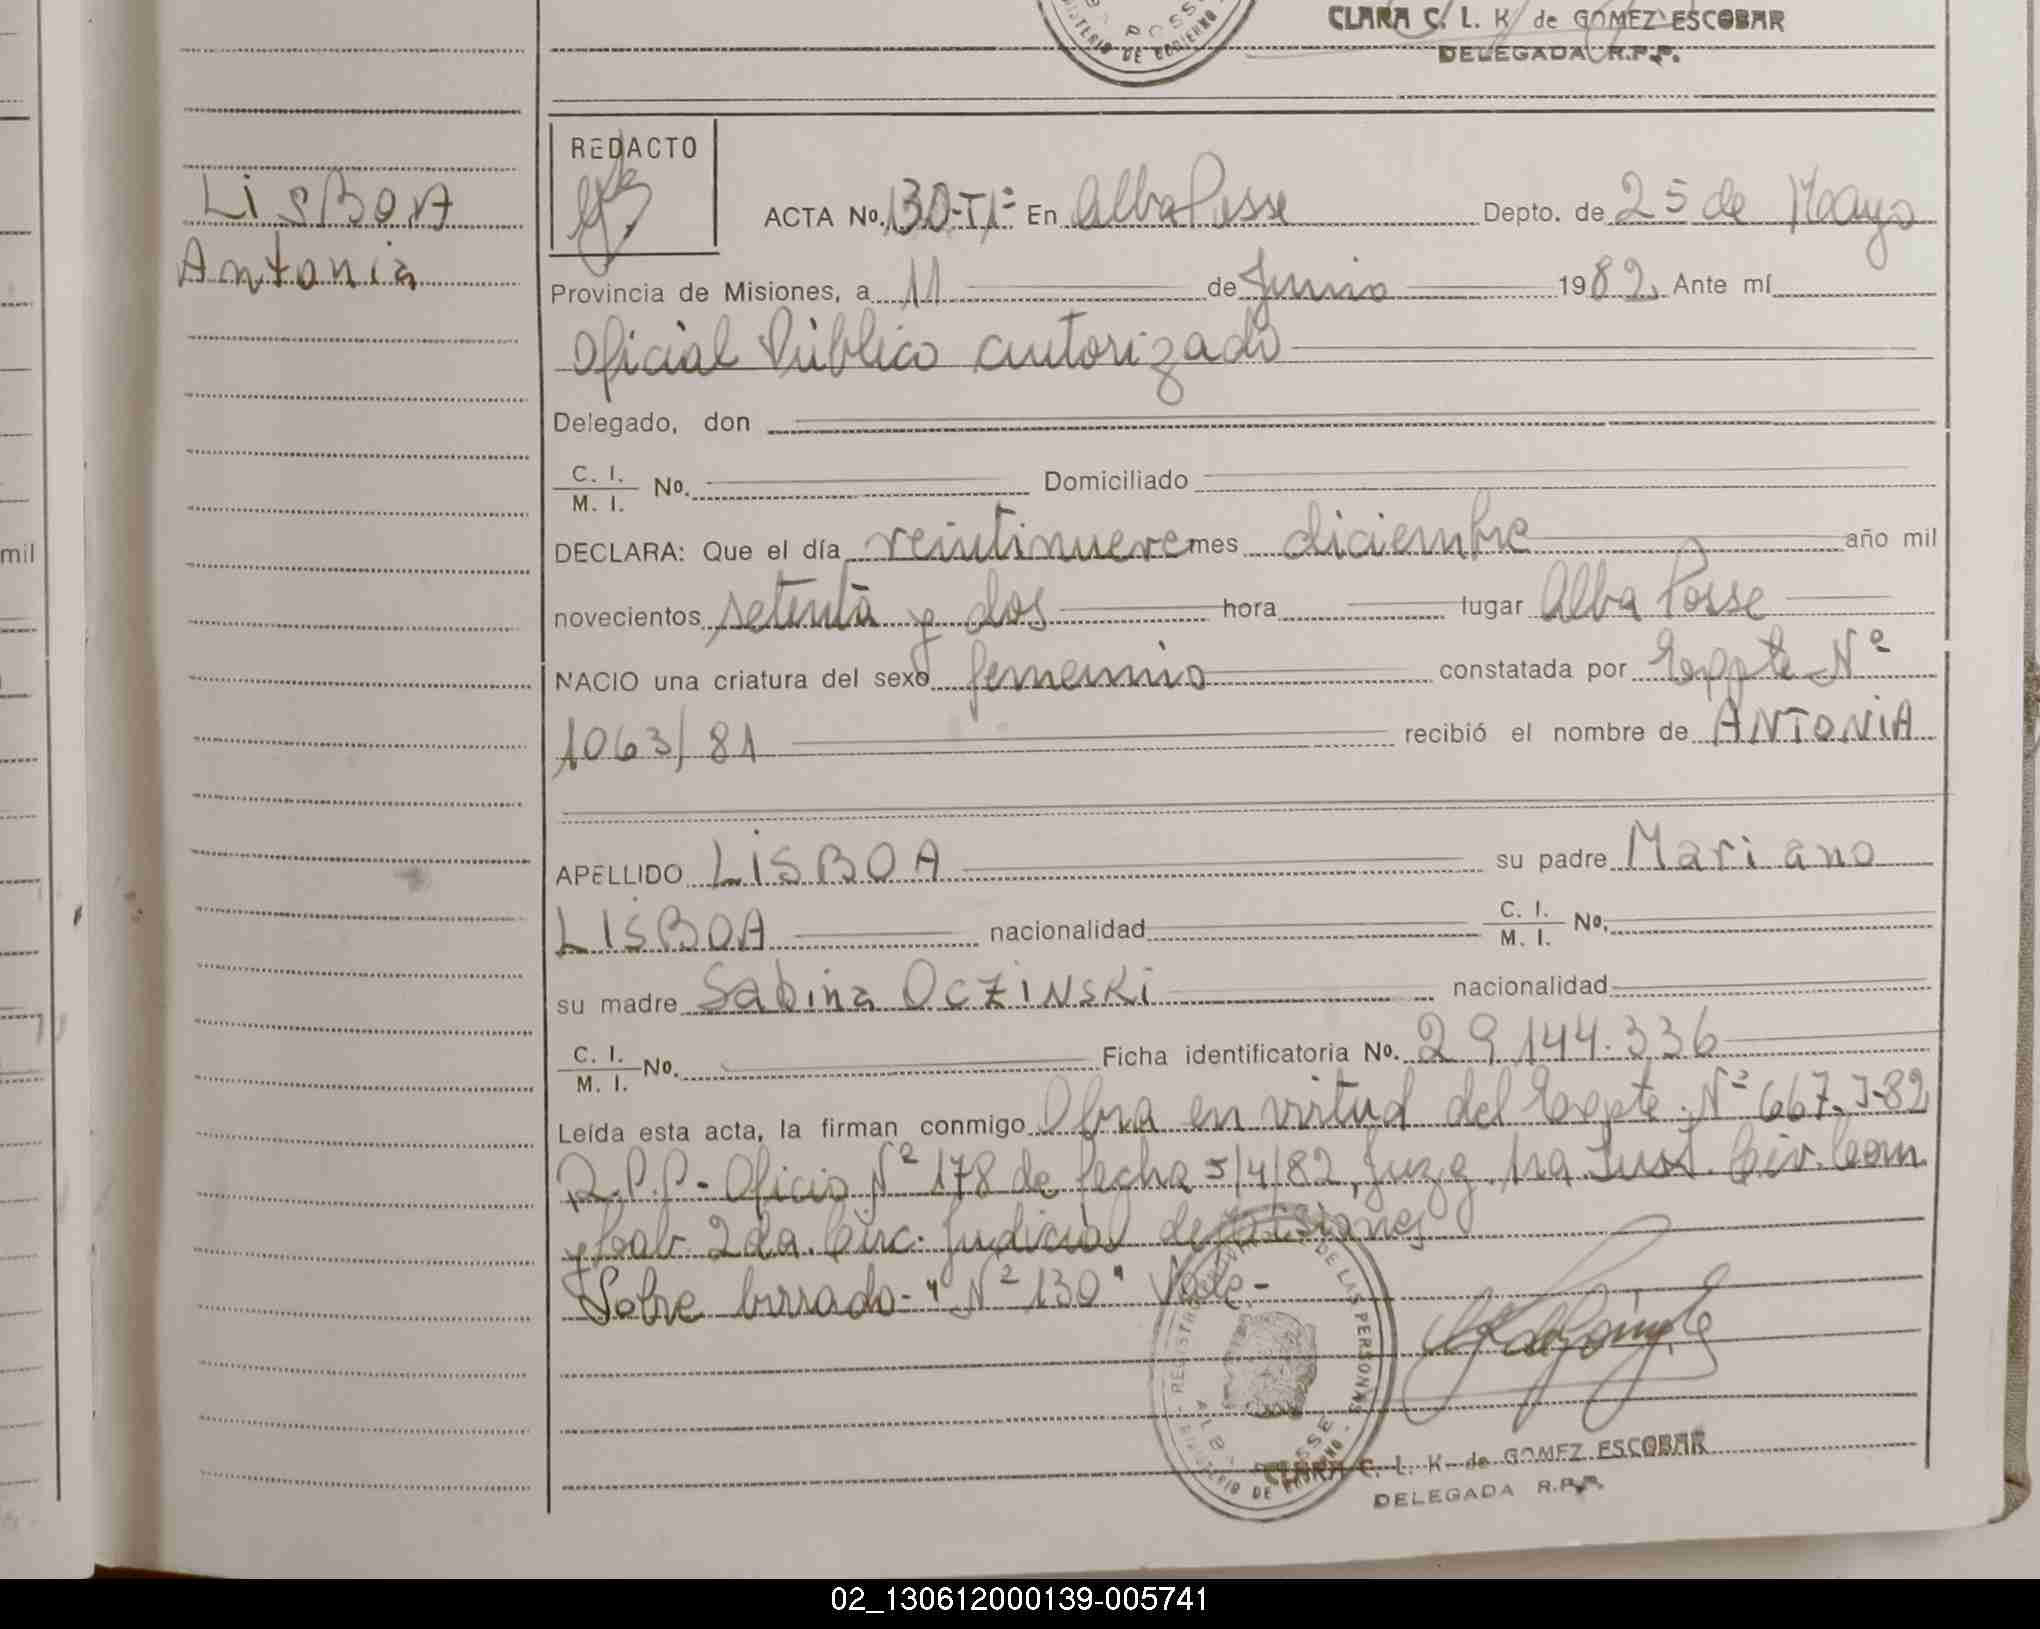 CLARA C. L. K. de GOMEZ ESCOBAR
DELEGADA R.P.P.
POSSE
MINISTERIO DE GOBIERNO
LISBOA
Antonia
REDACTO
ACTA No. 130-TIº En Alba Posse Depto. de 25 de Mayo
Provincia de Misiones, a 11 de Junio 1982. Ante mí
Oficial Público autorizado
Delegado, don
C. I.
M. I. No. Domiciliado
DECLARA: Que el día veintinueve mes diciembre año mil
novecientos setenta y dos hora lugar Alba Posse
NACIO una criatura del sexo femenino constatada por Expte Nº
1063/81 recibió el nombre de ANTONIA
APELLIDO LISBOA su padre Mariano
LISBOA nacionalidad C. I.
M. I. No.
su madre Sabina OCZINSKi nacionalidad
C. I.
M. I. No. Ficha identificatoria No. 29.144.336
Leída esta acta, la firman conmigo Obra en virtud del Expte. Nº 667-J-82
R.P.P.- Oficio Nº 178 de fecha 5/4/82, Juzg. 1ra Inst. Civ. Com
y Lab. 2da. Circ. Judicial de Misiones
Sobre borrado- "Nº 130" Vale.-
REGISTRO DE LAS PERSONAS
ALBA POSSE
MINISTERIO DE GOBIERNO
CLARA C. L. K. de GOMEZ ESCOBAR
DELEGADA R.P.P.
mil
02_130612000139-005741